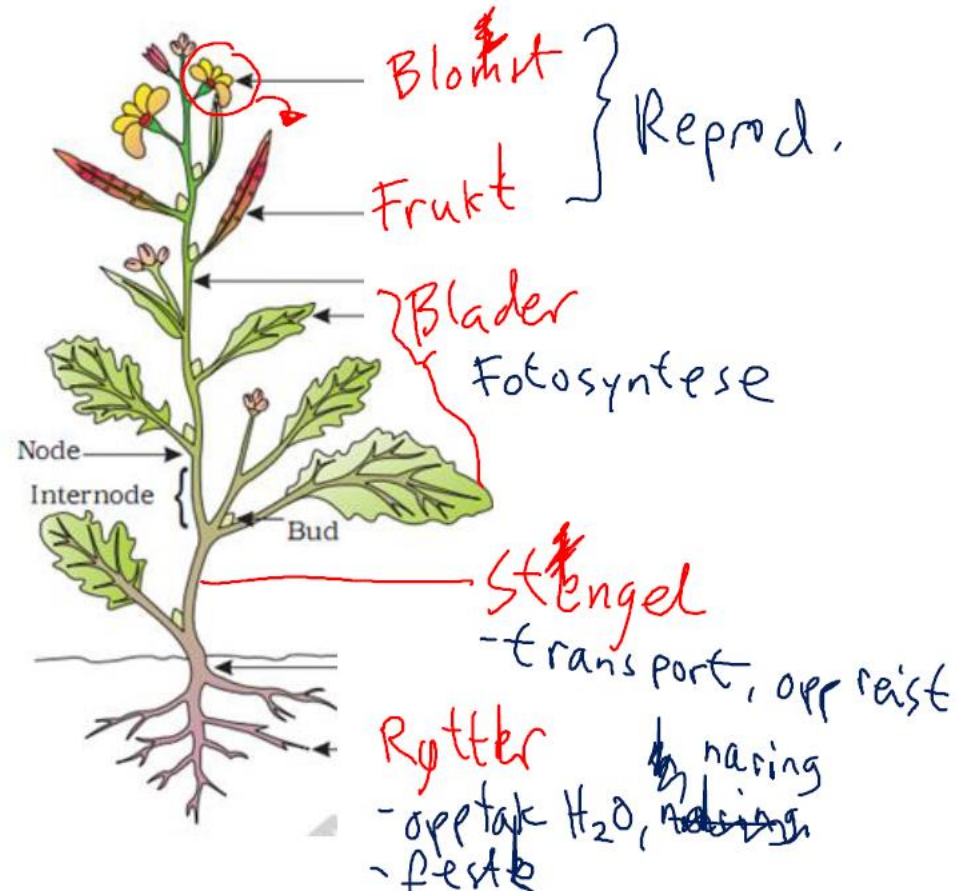 Blomst
Reprod.
Frukt
Blader
Fotosyntese
Node
Internode
Bud
Stengel
-transport, oppreist
Røtter
næring
-opptak H₂O,
-feste